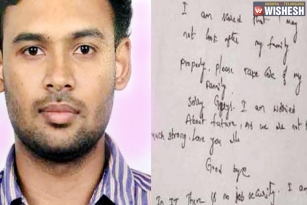 ANDHRA TELANGANA
WISHESH
I am
may
not look after my family
properly. Please take care of my
family.
Sorry
I am worried
About future,
we
not
much strong. Love you
Good bye
In IT There is no job security. I am